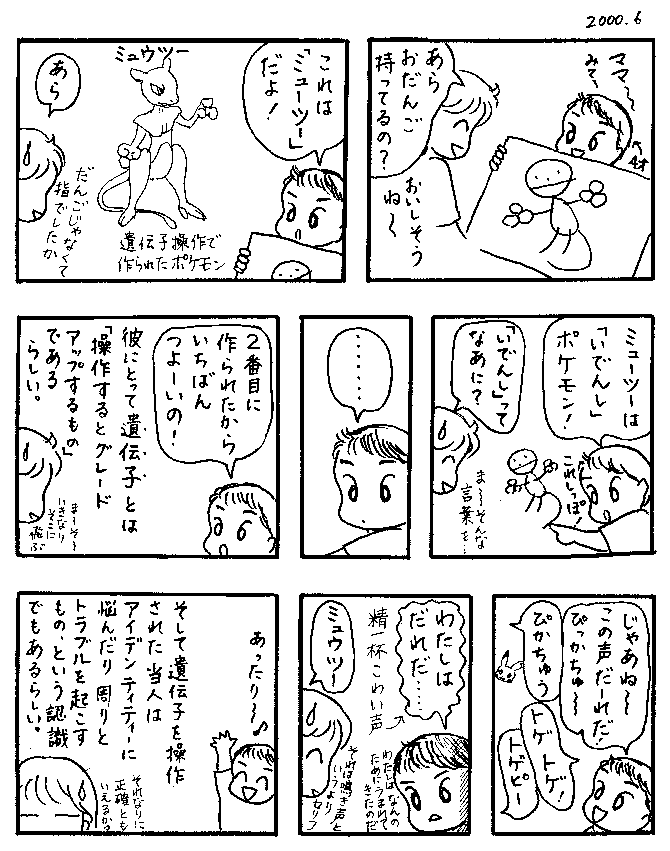 2000.6
ママ〜
みて〜
4才
あら
おだんご
持ってるの？
おいしそう
ね〜
これは
「ミューツー」
だよ！
ミュウツー
遺伝子操作で
作られたポケモン
あら
だんごじゃなくて
指でしたか
ミューツーは
「いでんし」
ポケモン！
これしっぽ！
「いでんし」って
なあに？
ま〜そんな
言葉を…
………
2番目に
作られたから
いちばん
つよーいの！
彼にとって遺伝子とは
「操作するとグレード
アップするもの」
である
らしい。
ま〜そ〜
いきなり
そこに
飛ぶ
じゃあね〜
この声だーれだ！
ぴっかちゅ〜
ぴかちゅう
トゲトゲ！
トゲピー
わたしは
だれだ……
精一杯こわい声
わたしはなんの
ためにうまれて
きたのだ
ミュウツー
それは鳴き声と
いうより
セリフ
あったり〜♪
そして遺伝子を操作
された当人は
アイデンティティーに
悩んだり周りと
トラブルを起こす
もの、という認識
でもあるらしい。
それなりに
正確とも
いえるか？